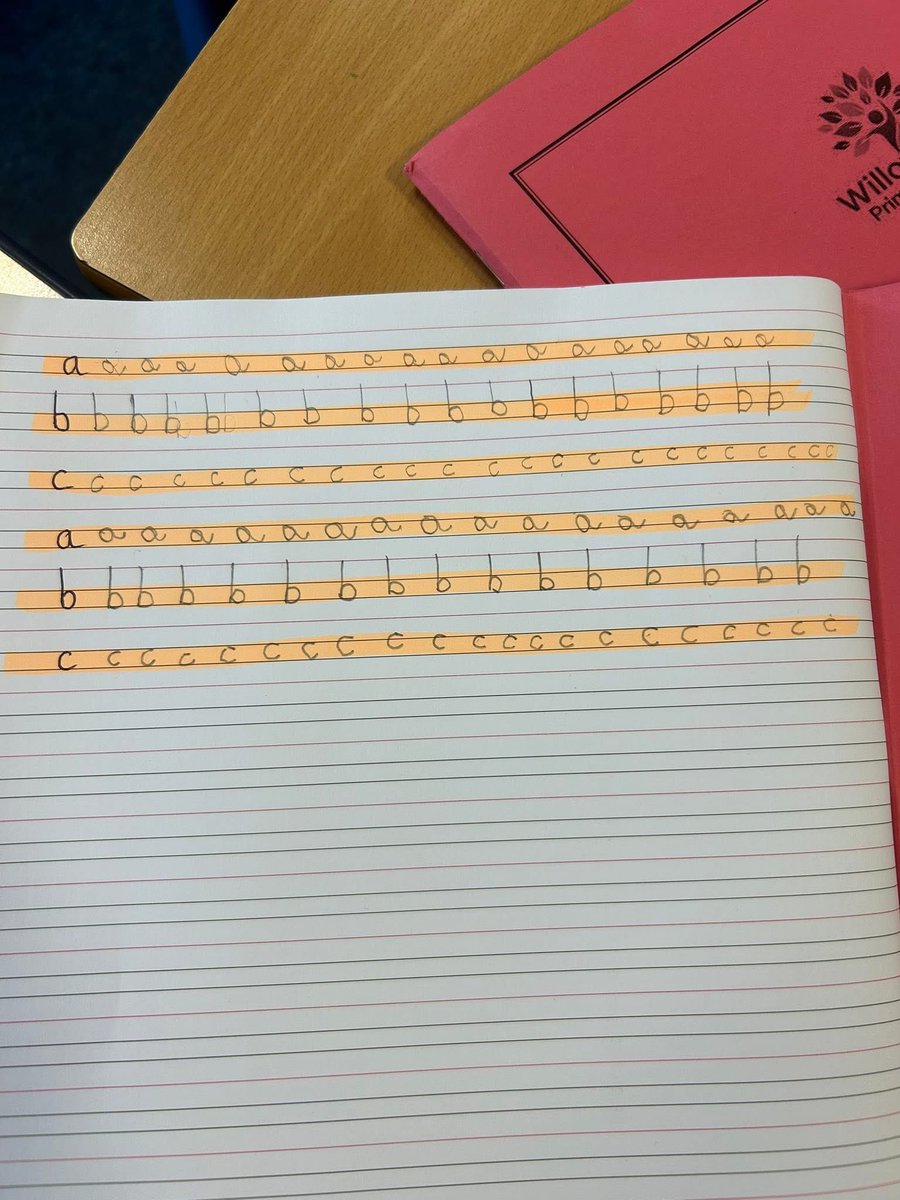 Willo
Prim
a a a a a a a a a a a a a a a a a a
b b b b b b b b b b b b b b b b b b
c c c c c c c c c c c c c c c c c c c c c c c
a a a a a a a a a a a a a a a a a a
b b b b b b b b b b b b b b b b
c c c c c c c c c c c c c c c c c c c c c